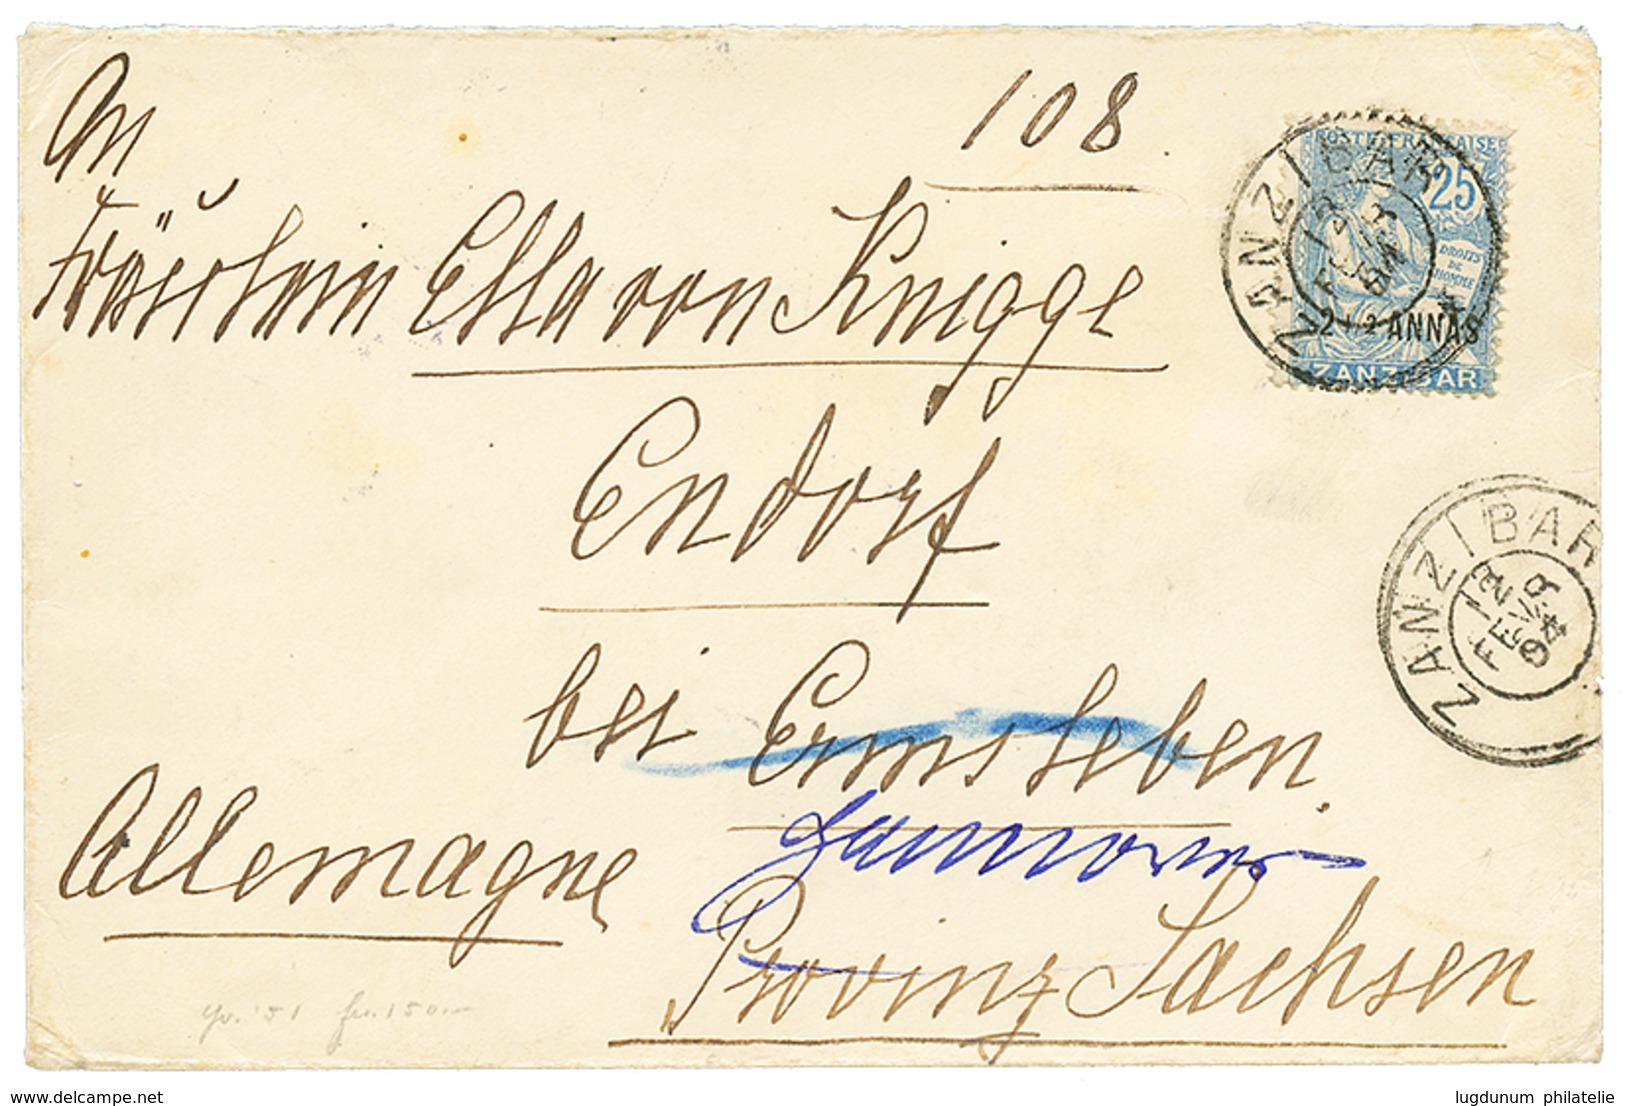 108.
An
Fräulein Ella von Knigge
Endorf
bei Ermsleben.
Hannover
Provinz Sachsen
Allemagne
POSTE FRANÇAISE
25
DROITS
DE
L'HOMME
2 1/2 ANNAS
ZANZIBAR
ZANZIBAR
12
FEVR
04
ZANZIBAR
12
FEVR
04
yv. '51 fr. 150.—
delcampe.net
lugdunum philatelie